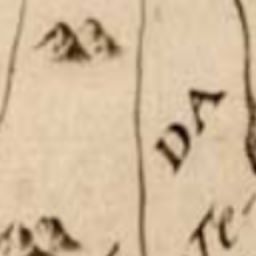 DA
Te-